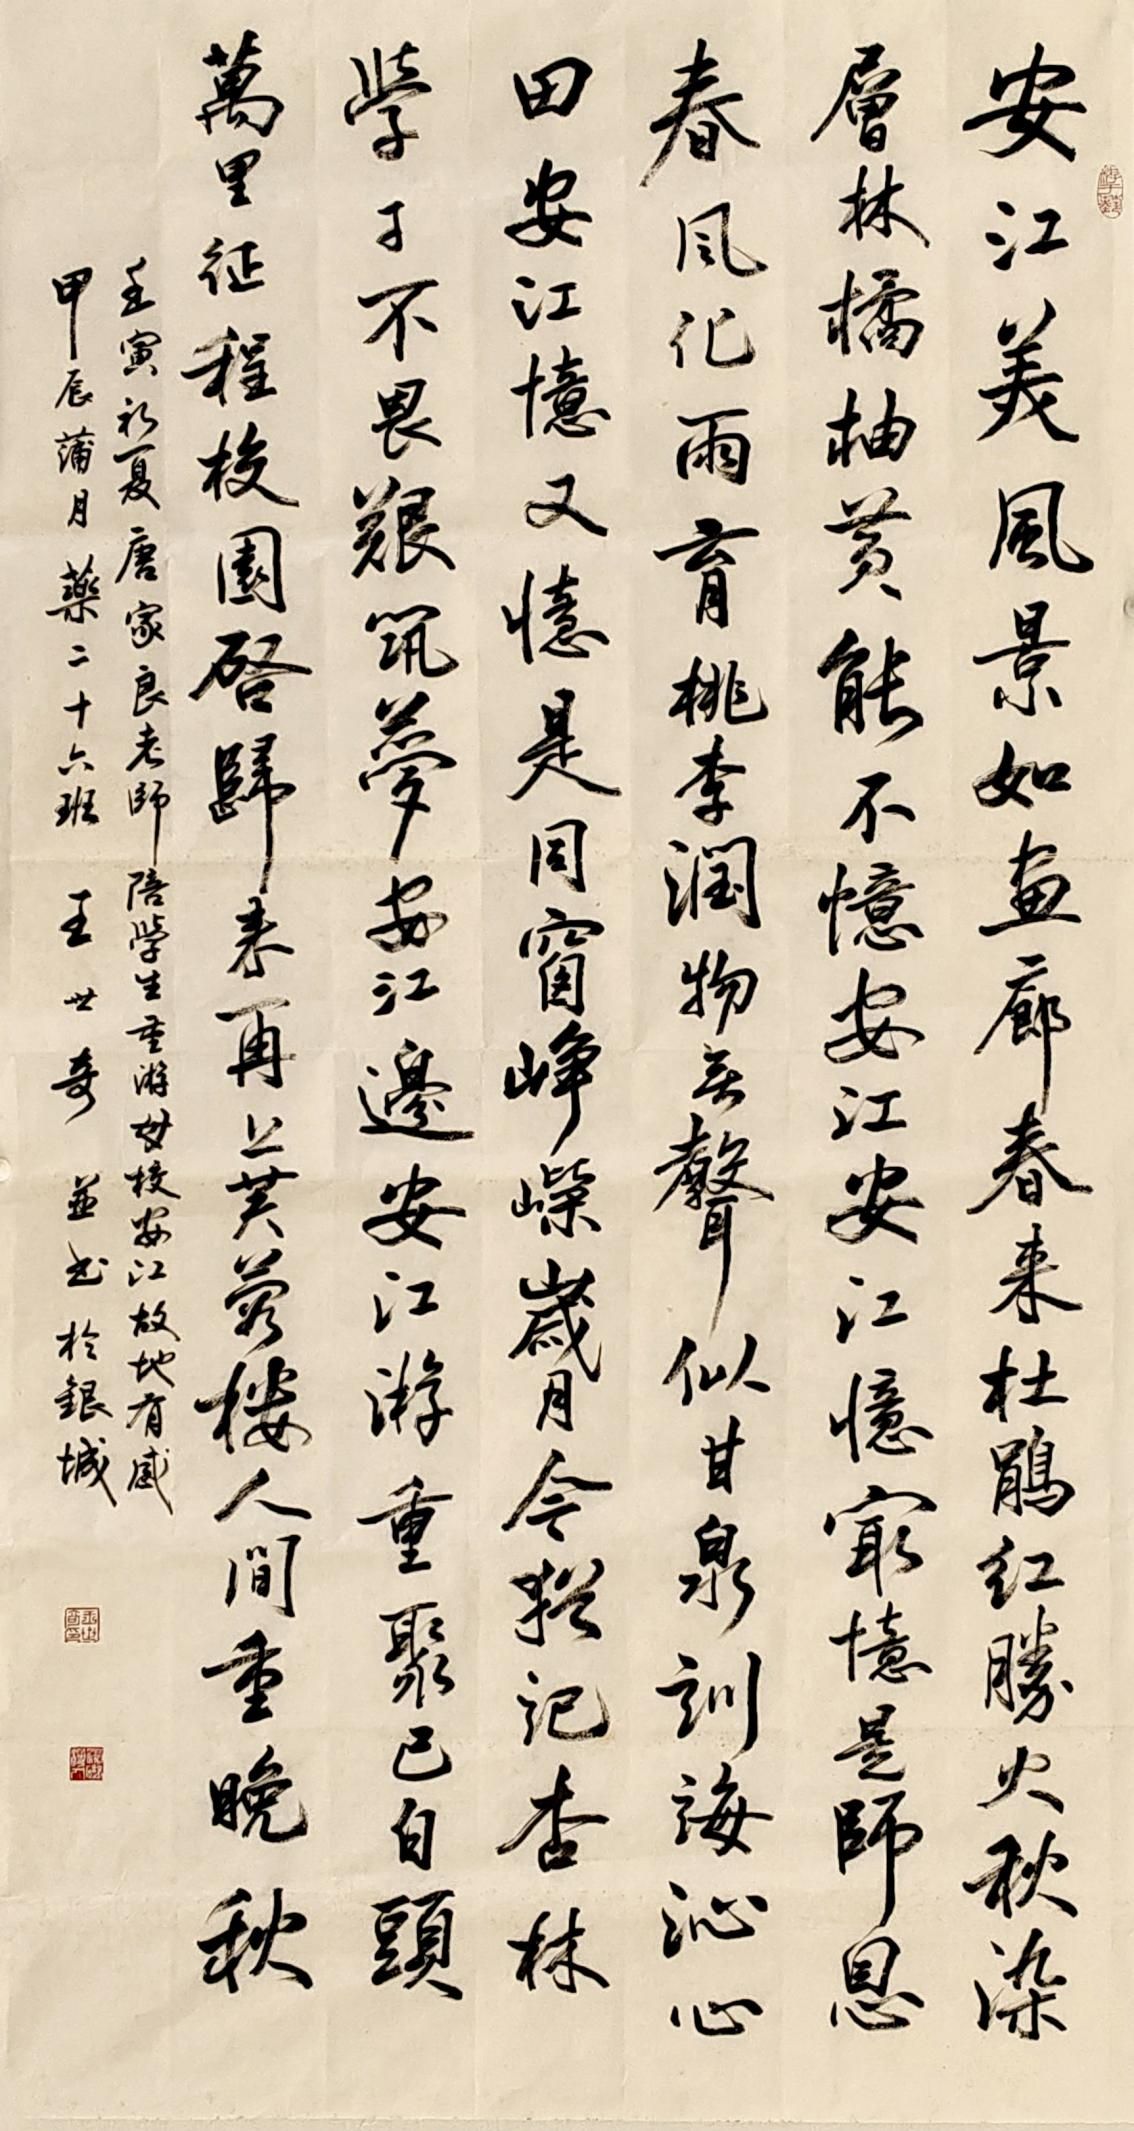 安江美風景如畫廊春来杜鵑红勝火秋染
層林橘柚黄能不憶安江安江憶㝡憶是師恩
春风化雨育桃李润物无聲似甘泉訓誨沁心
田安江憶又憶是同窗峥嵘歲月今猶记杏林
學子不畏艱筑夢安江邊安江游重聚已白頭
萬里征程校園啓歸来再上芙蓉楼人间重晚秋
壬寅初夏唐家良老師陪學生重游母校安江故地有感
甲辰蒲月藥二十六班 王世奇 並书於銀城